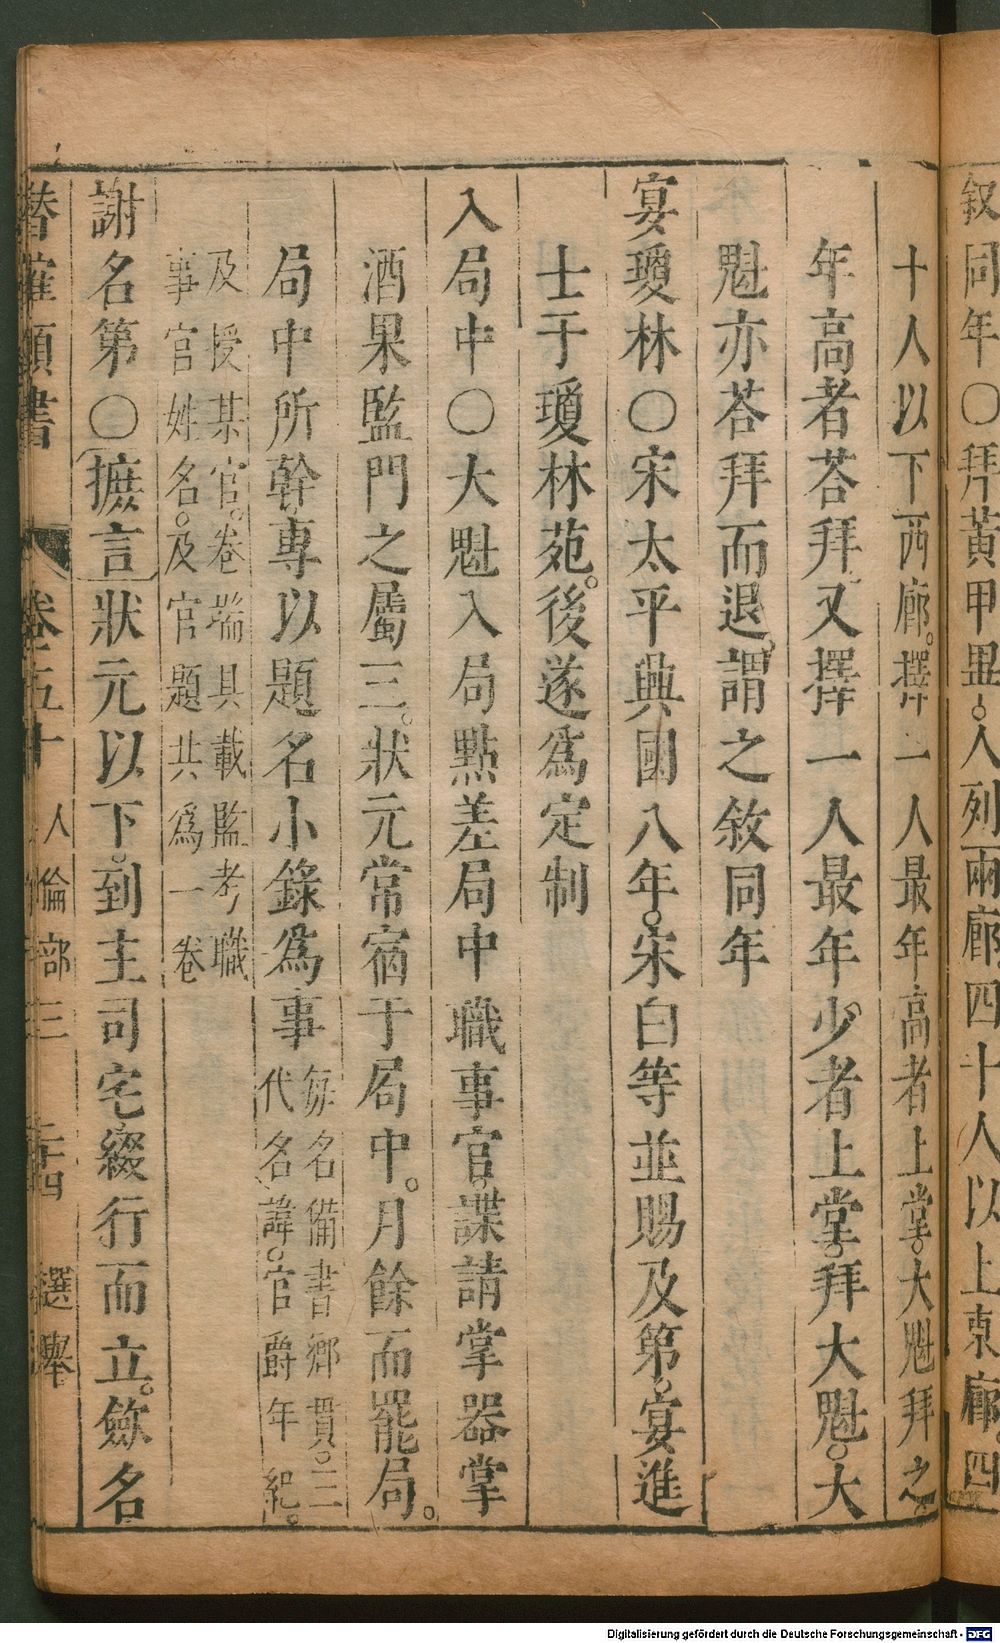 叙同年○拜黃甲畢入列兩廊四十人以上東廊四
十人以下西廊擇一人最年高者上堂大魁拜之
年高者荅拜又擇一人最年少者上堂拜大魁大
魁亦荅拜而退謂之敘同年
宴瓊林○宋太平興國八年宋白等並賜及第宴進
士于瓊林苑後遂爲定制
入局中○大魁入局點差局中職事官諜請掌器掌
酒果監門之屬三狀元常宿于局中月餘而罷局
局中所幹專以題名小錄爲事每名備書鄉貫三
代名諱官爵年紀
及授某官卷端具載監考職
事官姓名及官題共爲一卷
謝名第○摭言狀元以下到主司宅綴行而立斂名
潛確類書 卷五十 人倫部三 二十四 選舉
Digitalisierung gefördert durch die Deutsche Forschungsgemeinschaft - DFG